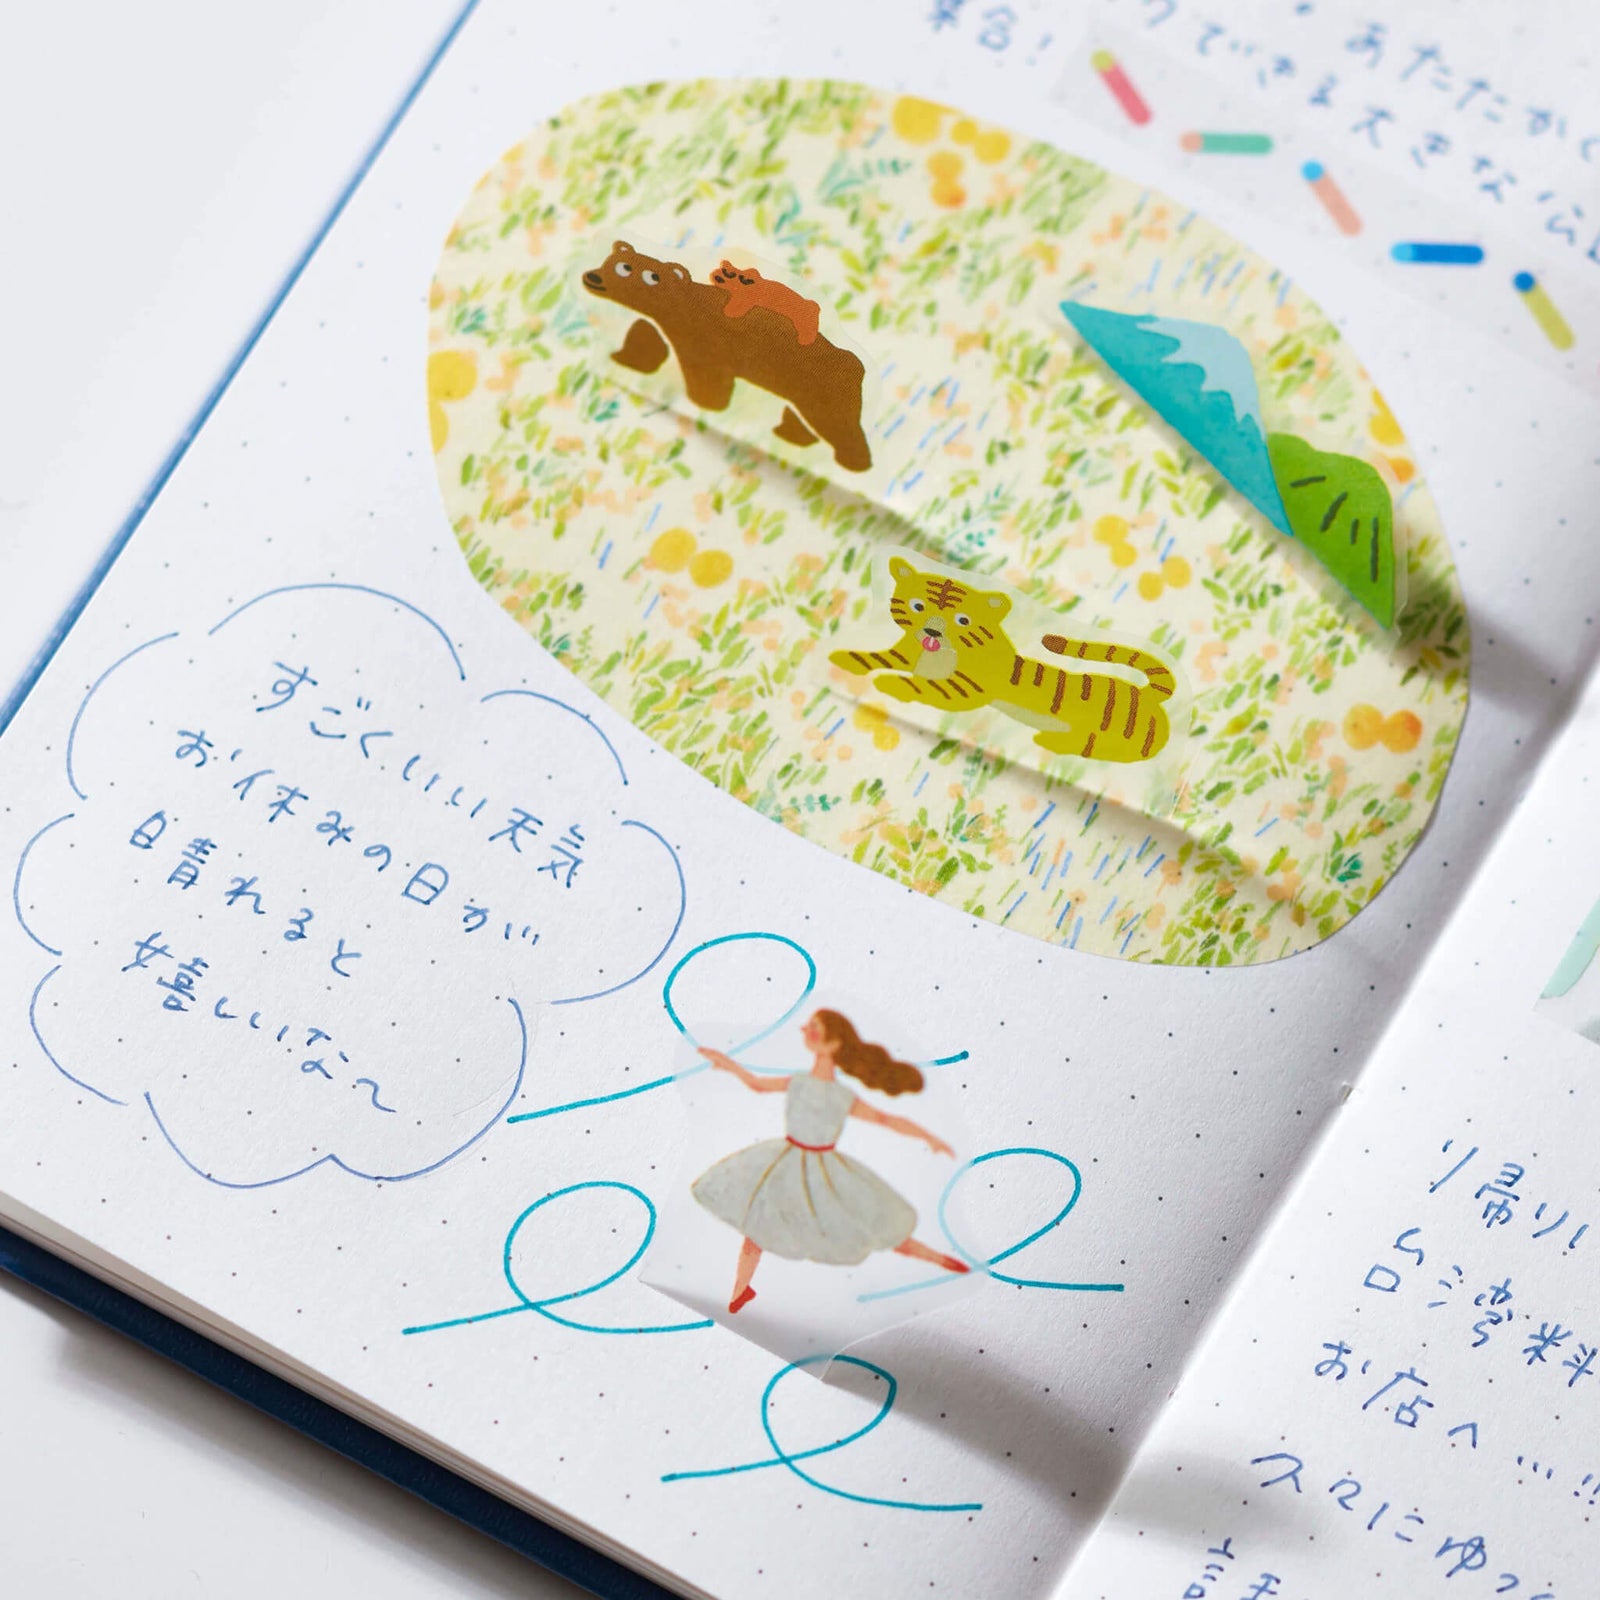 集合!
あたたかく
クできる大きな公
すごくいい天気
お休みの日が
日晴れると
嬉しいな〜
り帰り
台湾料
お店へ…!!
久々にゆっく
話